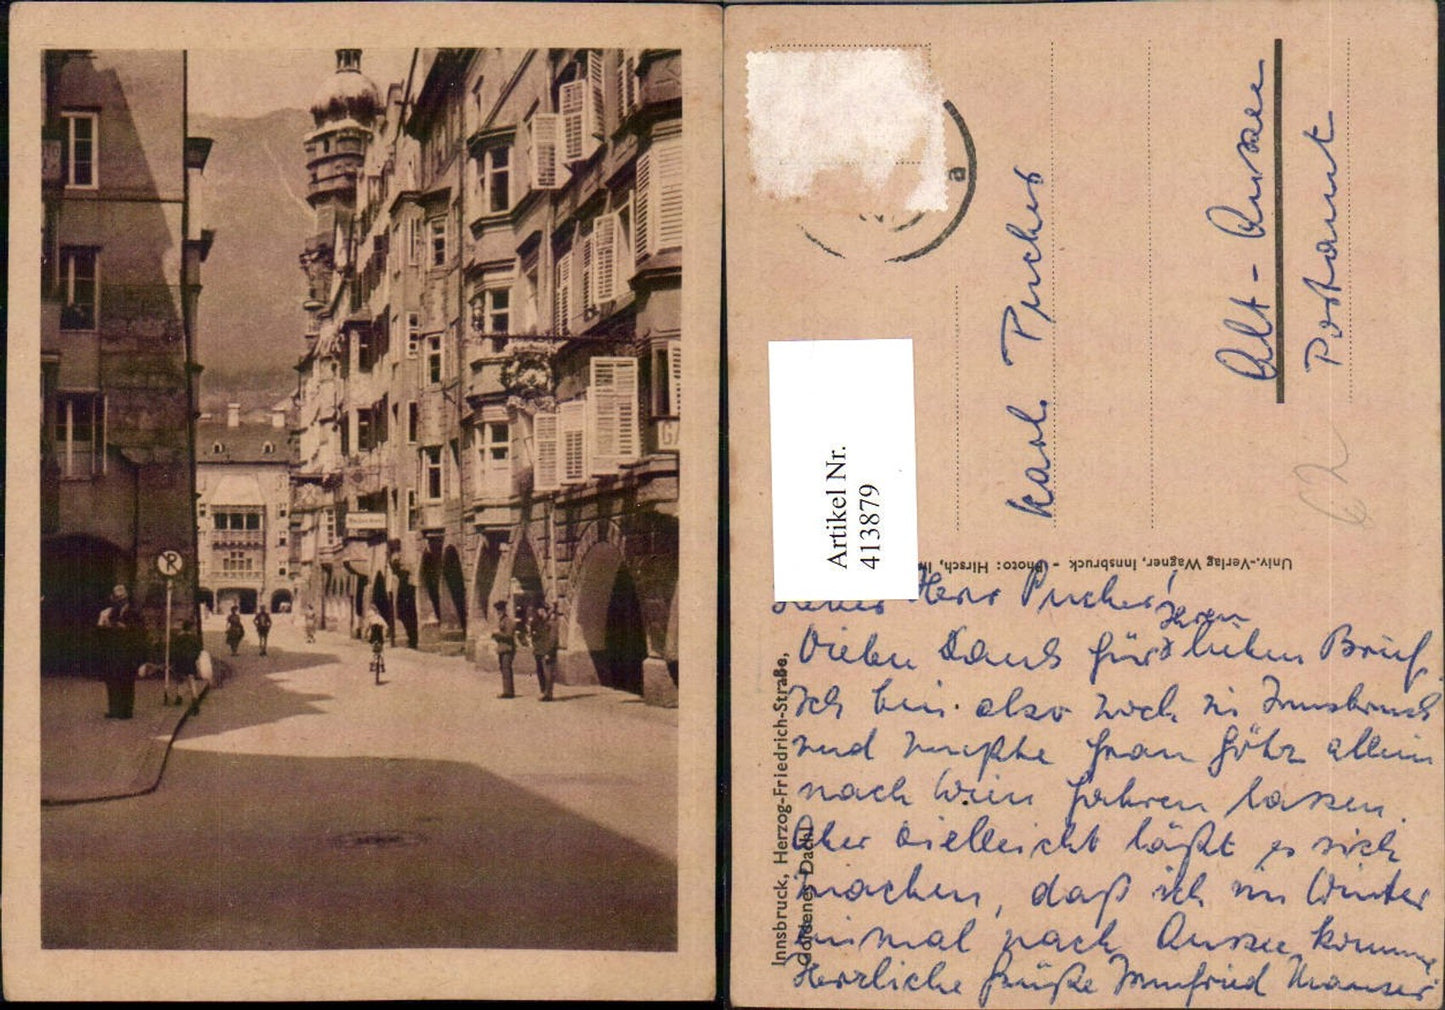 Artikel Nr.
413879
a
Karl Pucher
Alt-Aussee
Postamt
62
Univ.-Verlag Wagner, Innsbruck - Photo: Hirsch,
Innsbruck, Herzog-Friedrich-Straße,
Goldenes Dachl
Lieber Herr Pucher!
Vielen Dank für Ihren lieben Brief.
Ich bin also noch in Innsbruck
und mußte Frau Göhr allein
nach Wien fahren lassen.
Aber vielleicht läßt es sich
machen, daß ich im Winter
einmal nach Aussee komme
Herzliche Grüße